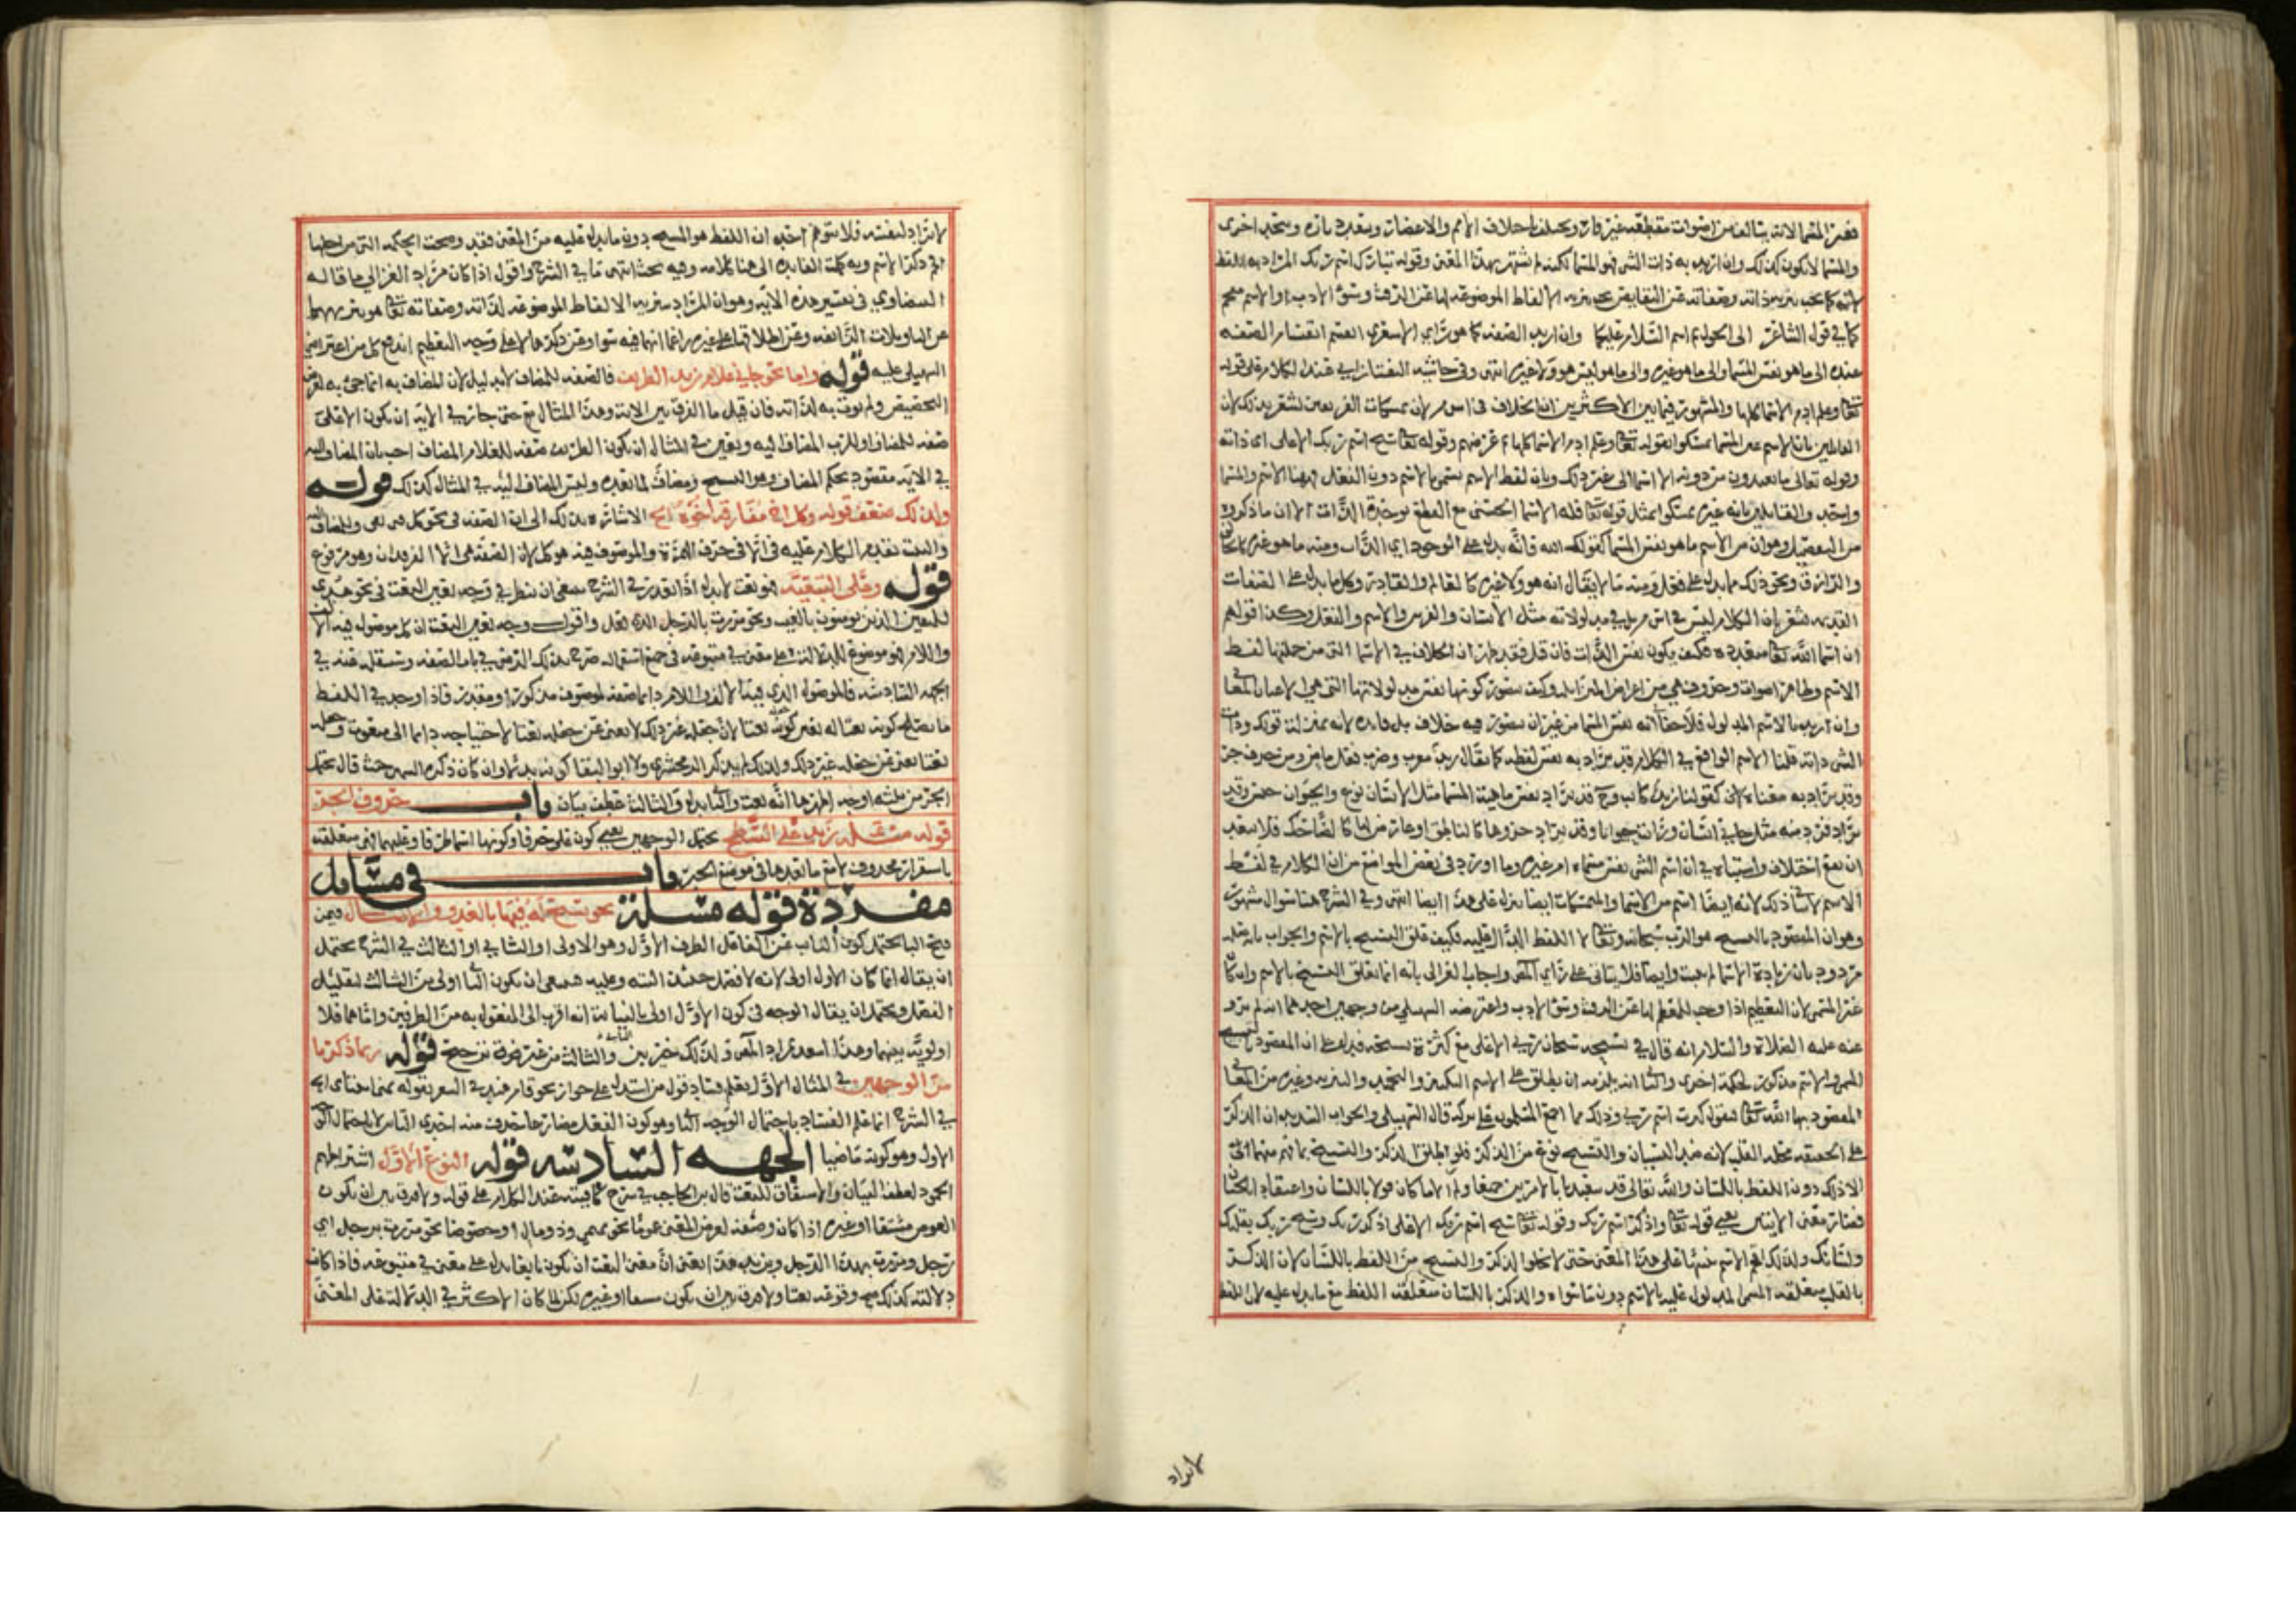 فغير المسما لانه يتالف من اصوات مقطعه غير قاره ويختلف باختلاف الامم والاعصار ويتعدد تاره ويتحد اخرى
والمسما لا يكون كذلك وان اريد به ذات الشي فهو المسما لكنه لم يشتهر بهذا المعنى وقوله تبارك اسم ربك المراد به اللفظ
لانه كما يجب تنزيه ذاته وصفاته عن النقايص يجب تنزيه الالفاظ الموضوعه لها عن الرفث وسؤ الادب او الاسم مقحم
كما في قول الشاعر الى الحول ثم اسم السلام عليكما وان اريد الصفه كما هو راي الاشعري انقسم انقسام الصفه
عنده الى ما هو نفس المسما والى ما هو غيره والى ما ليس هو ولا غيره انتهى وفي حاشية التفتازاني عند الكلام على قوله
تعالى وعلم ادم الاسما كلها والمشهور فيما بين الاكثرين ان الخلاف في اسم لان تمسكات الفريقين تشعر بذلك لان
القايلين بان الاسم عين المسما تمسكوا بقوله تعالى وعلم ادم الاسما كلها ثم عرضهم وقوله تعالى سبح اسم ربك الاعلى اي ذاته
وقوله تعالى ما تعبدون من دونه الا اسما الى غير ذلك وبان لفظ الاسم يسمى بالاسم دون الفعل فههنا الاسم والمسما
واحد والقايلين بانه غيره تمسكوا بمثل قوله تعالى فله الاسما الحسنى مع القطع بوحدة الذات الا ان ما ذكروه
من التفصيل وهو ان من الاسم ما هو نفس المسما كقولك الله فانه يدل على الوجود اي الذات ومنه ما هو غيره كالخالق
والرازق ونحو ذلك مما يدل على فعل ومنه ما لا يقال انه هو ولا غيره كالعالم والقادر وكل ما يدل على الصفات
القديمه يشعر بان الكلام ليس في اس م بل في مدلولاته مثل الانسان والفرس والاسم والفعل وكذا قولهم
ان اسما الله تعالى متعدده فكيف يكون نفس الذات فان قيل فقد ظهر ان الخلاف في الاسما التي من جملتها لفظ
الاسم وظاهر اصوات وحروف هي من اعراض المتزايله وكيف يتصور كونها نفس مدلولاتها التي هي الاعيان والمعاني
وان اريد بالاسم المدلول فلا خفا في انه نفس المسما من غير ان يتصور فيه خلاف بل فايده لانه بمنزلة قولك وذات
الشي ذاته قلنا الاسم الواقع في الكلام قد يراد به نفس لفظه كما يقال زيد معرب وضرب فعل ماض ومن حرف جر
وقد يراد به معناه كقولنا زيد كاتب وح قد يراد نفس ماهية المسما مثل الانسان نوع والحيوان جنس وقد
يراد فرد منه مثل جاني انسان ورايت حيوانا وقد يراد جزوها كالناطق او عارض لها كالضاحك فلا يبعد
ان يقع اختلاف واشتباه في ان اسم الشي نفس مسماه ام غيره وما اورد في بعض المواضع من ان الكلام في لفظ
الاسم لا ينافي ذلك لانه ايضا اسم من الاسما والمسميات ايضا ينزل على هذا ايضا انتهى وفي الشرح هنا سوال مشهور
وهو ان المقصود بالتسبيح هو الرب سبحانه وتعالى لا اللفظ الدال عليه فكيف علق التسبيح بالاسم والجواب بان صله
مردود بان زيادة الاسما لم تثبت وايضا فلا يتاتى على راي المص واجاب الغزالي بانه انما تعلق التسبيح بالاسم وان كان
غير المسمى لان التعظيم اذا وجب للمعظم لها عن الرفث وسؤ الادب واعترضه السهيلي من وجهين احدهما انه لم يرو
عنه عليه الصلاة والسلام انه قال في تسبيحه سبحان ربي الاعلى مع كثرة تسبيحه فدل على ان المقصود التسبيح
المسمى والاسم مذكور لحكمة اخرى والثاني انه يلزمه ان يطلق على الاسم التكبير والتحميد والتنزيه وغيره من المعاني
المقصود بها الله تعالى فيقول كبرت اسم ربي وذلك مما اجمع المسلمون على تركه قال السهيلي والجواب السديد ان الذكر
على الحقيقه محله القلب لانه ضد النسيان والتسبيح نوع من الذكر فلو اطلق الذكر والتسبيح لما فهم منهما الا
الا ذلك دون اللفظ باللسان والله تعالى قد تعبدنا بالامرين جميعا ولم الا ما كان قولا باللسان واعتقادا بالجنان
فصار معنى الايتين يعني قوله تعالى واذكر اسم ربك وقوله تعالى سبح اسم ربك الاعلى اذكر ربك وسبح ربك بقلبك
ولسانك ولذلك اقحم الاسم تنبيها على هذا المعنى حتى لا يخلوا الذكر والتسبيح من اللفظ باللسان لان الذكر
بالقلب متعلقه المسمى المدلول عليه بالاسم دون ما سواه والذكر باللسان متعلقه اللفظ مع ما يدل عليه لان اللفظ
لا يراد
لا يراد لنفسه فلا يتوهم احد ان اللفظ هو المسبح دون ما يدل عليه من المعنى فقد وضحت الحكمة التي من اجلها
اقحم ذكر الاسم وبه كملت الفايده الى هنا كلامه وفيه بحث انتهى ما في الشرح واقول اذا كان مراد الغزالي ما قاله
البيضاوي في تفسير هذه الايه وهو ان المراد تنزيه الالفاظ الموضوعه لذاته وصفاته تعالى هو تنزيهها
عن التاويلات الزايغه وعن اطلاقها على غيره زاعما انهما فيه سوا وعن ذكرها لا على وجه التعظيم اندفع كل من اعتراضي
السهيلي عليه قوله واما نحو جاني غلام زيد الظريف فالصفه للمضاف لا بدليل لان المضاف به انما جئ به لغرض
التخصيص ولم يوت به لذاته فان قيل ما الفرق بين الاية وهذا المثال مع حتى جاز في الاية ان يكون الاعلى
صفه للمضاف او للرب المضاف اليه وتعين في المثال ان يكون الظريف صفه للغلام المضاف اجيب بان المضاف اليه
في الاية مقصود بحكم المضاف وهو التسبيح ومضاف لما بعده وليس المضاف اليه في المثال كذلك قوله
ولذلك ضعف قوله وكل اخ مفارقه اخوه الخ الاشاره بذلك الى ان الصفه في نحو كل فتى يتقي وللمضاف اليه
والبيت تقدم الكلام عليه في الا في حرف الهمزة والموصوف فيه هو كل لان الصفه هي الا الفرقدان وهو مرفوع
قوله وعلى التبعيه فهو نعت لا بدل اذا تعذرت في الشرح ينبغي ان ينظر في وجه تعين النعت في نحو هدى
للمتقين الذين يومنون بالغيب ونحو مررت بالرجل الذي فعل واقول وجه تعين النعت ان الموصول فيه الالف
واللام هو موضوع للدلالة على معنى في متبوعه في جميع استعماله صرح بذلك الرضي في باب الصفه وستنقله عنه في
الجهة السادسه فالموصول الذي فيه الالف واللام دايما صفه لموصوف مذكور او مقدر فاذا وجد في اللفظ
ما يصلح كونه نعتا له تعين كونه نعتا لان جعله غير ذلك لا يغني عن جعله نعتا لاحتياجه دايما الى منعوت وجعله
نعتا يغني عن جعله غير ذلك ولذلك لم يذكر الزمخشري ولا ابو البقا كونه بدلا وان كان ذكره السمين حيث قال يحتمل
الجر من ثلثة اوجه اظهرها انه نعت والثاني بدل والثالث عطف بيان باب حروف الجر
قوله مسئله زيد على السطح يحتمل الوجهين يعني كون على حرفا وكونها اسما ظرفا وعليهما فهي متعلقه
باستقرار محذوف لا مع ما بعدها في موضع الخبر باب في مسايل
مفردة قوله مسئلة نحو يسبح له فيها بالغدو والاصال فيمن
فتح البا يحتمل كون النايب عن الفاعل الظرف الاول وهو الاولى او الثاني او الثالث في الشرح يحتمل
ان يقال انما كان الاول اولى لانه لا فصل حينئذ البته وعليه فينبغي ان يكون الثاني اولى من الثالث لقلة
الفصل ويحتمل ان يقال الوجه في كون الاول اولى بالنيابة انه اقرب الى المفعول به من الظرفين واما هما فلا
اولوية بينهما وهذا اسعد بمراد المص ولذلك خير بين الثاني والثالث من غير فرق ترجيح قوله ربما ذكرنا
من الوجهين في المثال الاول يعلم فساد قول من استدل على جواز نحو قام هند في الشعر بقوله تمنى ابنتاي الخ
في الشرح انما علم الفساد باحتمال الوجه الثاني وهو كون الفعل مضارعا حذفت منه احدى التاين لا باحتمال الوجه
الاول وهو كونه ماضيا الجهه السادسه قوله النوع الاول اشتراطهم
الجمود لعطف البيان والاشتقاق للنعت قال ابن الحاجب في شرح كافيته عند الكلام على قوله ولا فرق بين ان يكون
النعت مشتقا او غيره اذا كان وضعه لغرض المعنى عموما نحو تميمي وذو مال او خصوصا نحو مررت برجل اي
رجل ومررت بهذا الرجل وبزيد هذا يعني ان معنى النعت ان يكون تابعا يدل على معنى في متبوعه فاذا كانت
دلالته كذلك صح وقوعه نعتا ولا فرق بين ان يكون مشتقا او غيره لكن لما كان الاكثر في الدلالة على المعنى